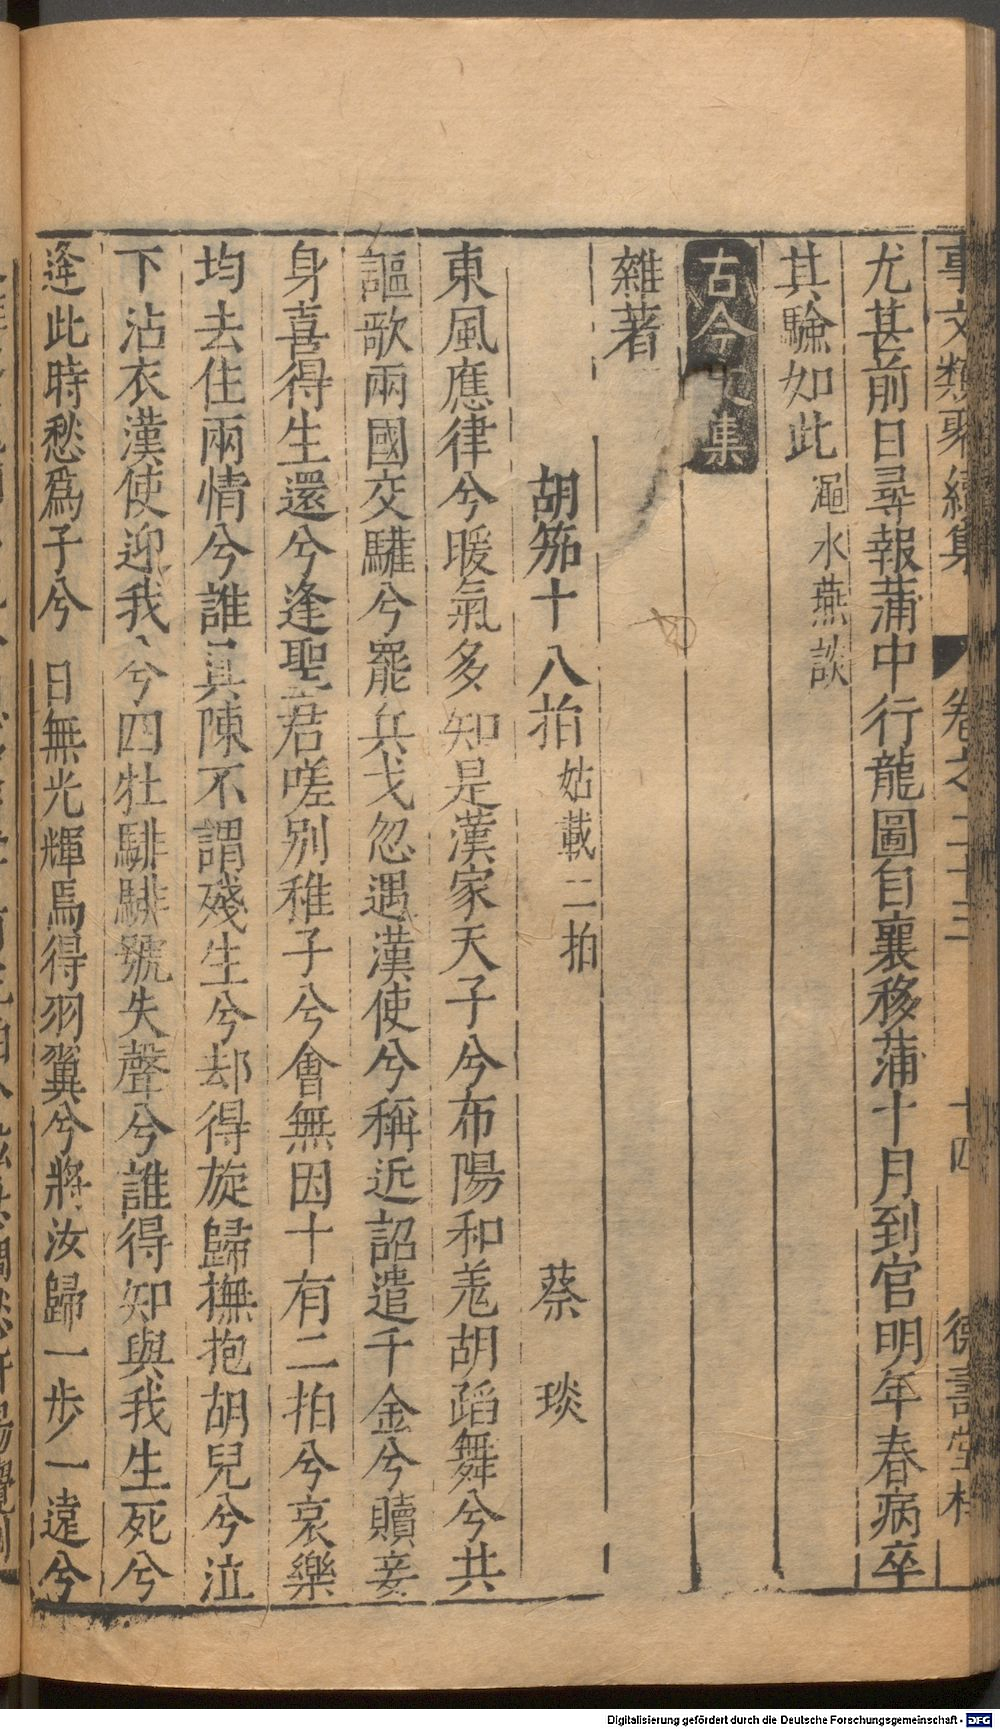 事文類聚續集 卷之二十三 十四 德壽堂梓
尤甚前日尋報蒲中行龍圖自襄移蒲十月到官明年春病卒
其驗如此 澠水燕談
古今文集
雜著
胡笳十八拍 姑載二拍 蔡 琰
東風應律兮暖氣多知是漢家天子兮布陽和羌胡蹈舞兮共
謳歌兩國交驩兮罷兵戈忽遇漢使兮稱近詔遣千金兮贖妾
身喜得生還兮逢聖君嗟別稚子兮會無因十有二拍兮哀樂
均去住兩情兮誰具陳不謂殘生兮却得旋歸撫抱胡兒兮泣
下沾衣漢使迎我兮四牡騑騑號失聲兮誰得知與我生死兮
逢此時愁爲子兮 日無光輝焉得羽翼兮將汝歸一步一遠兮